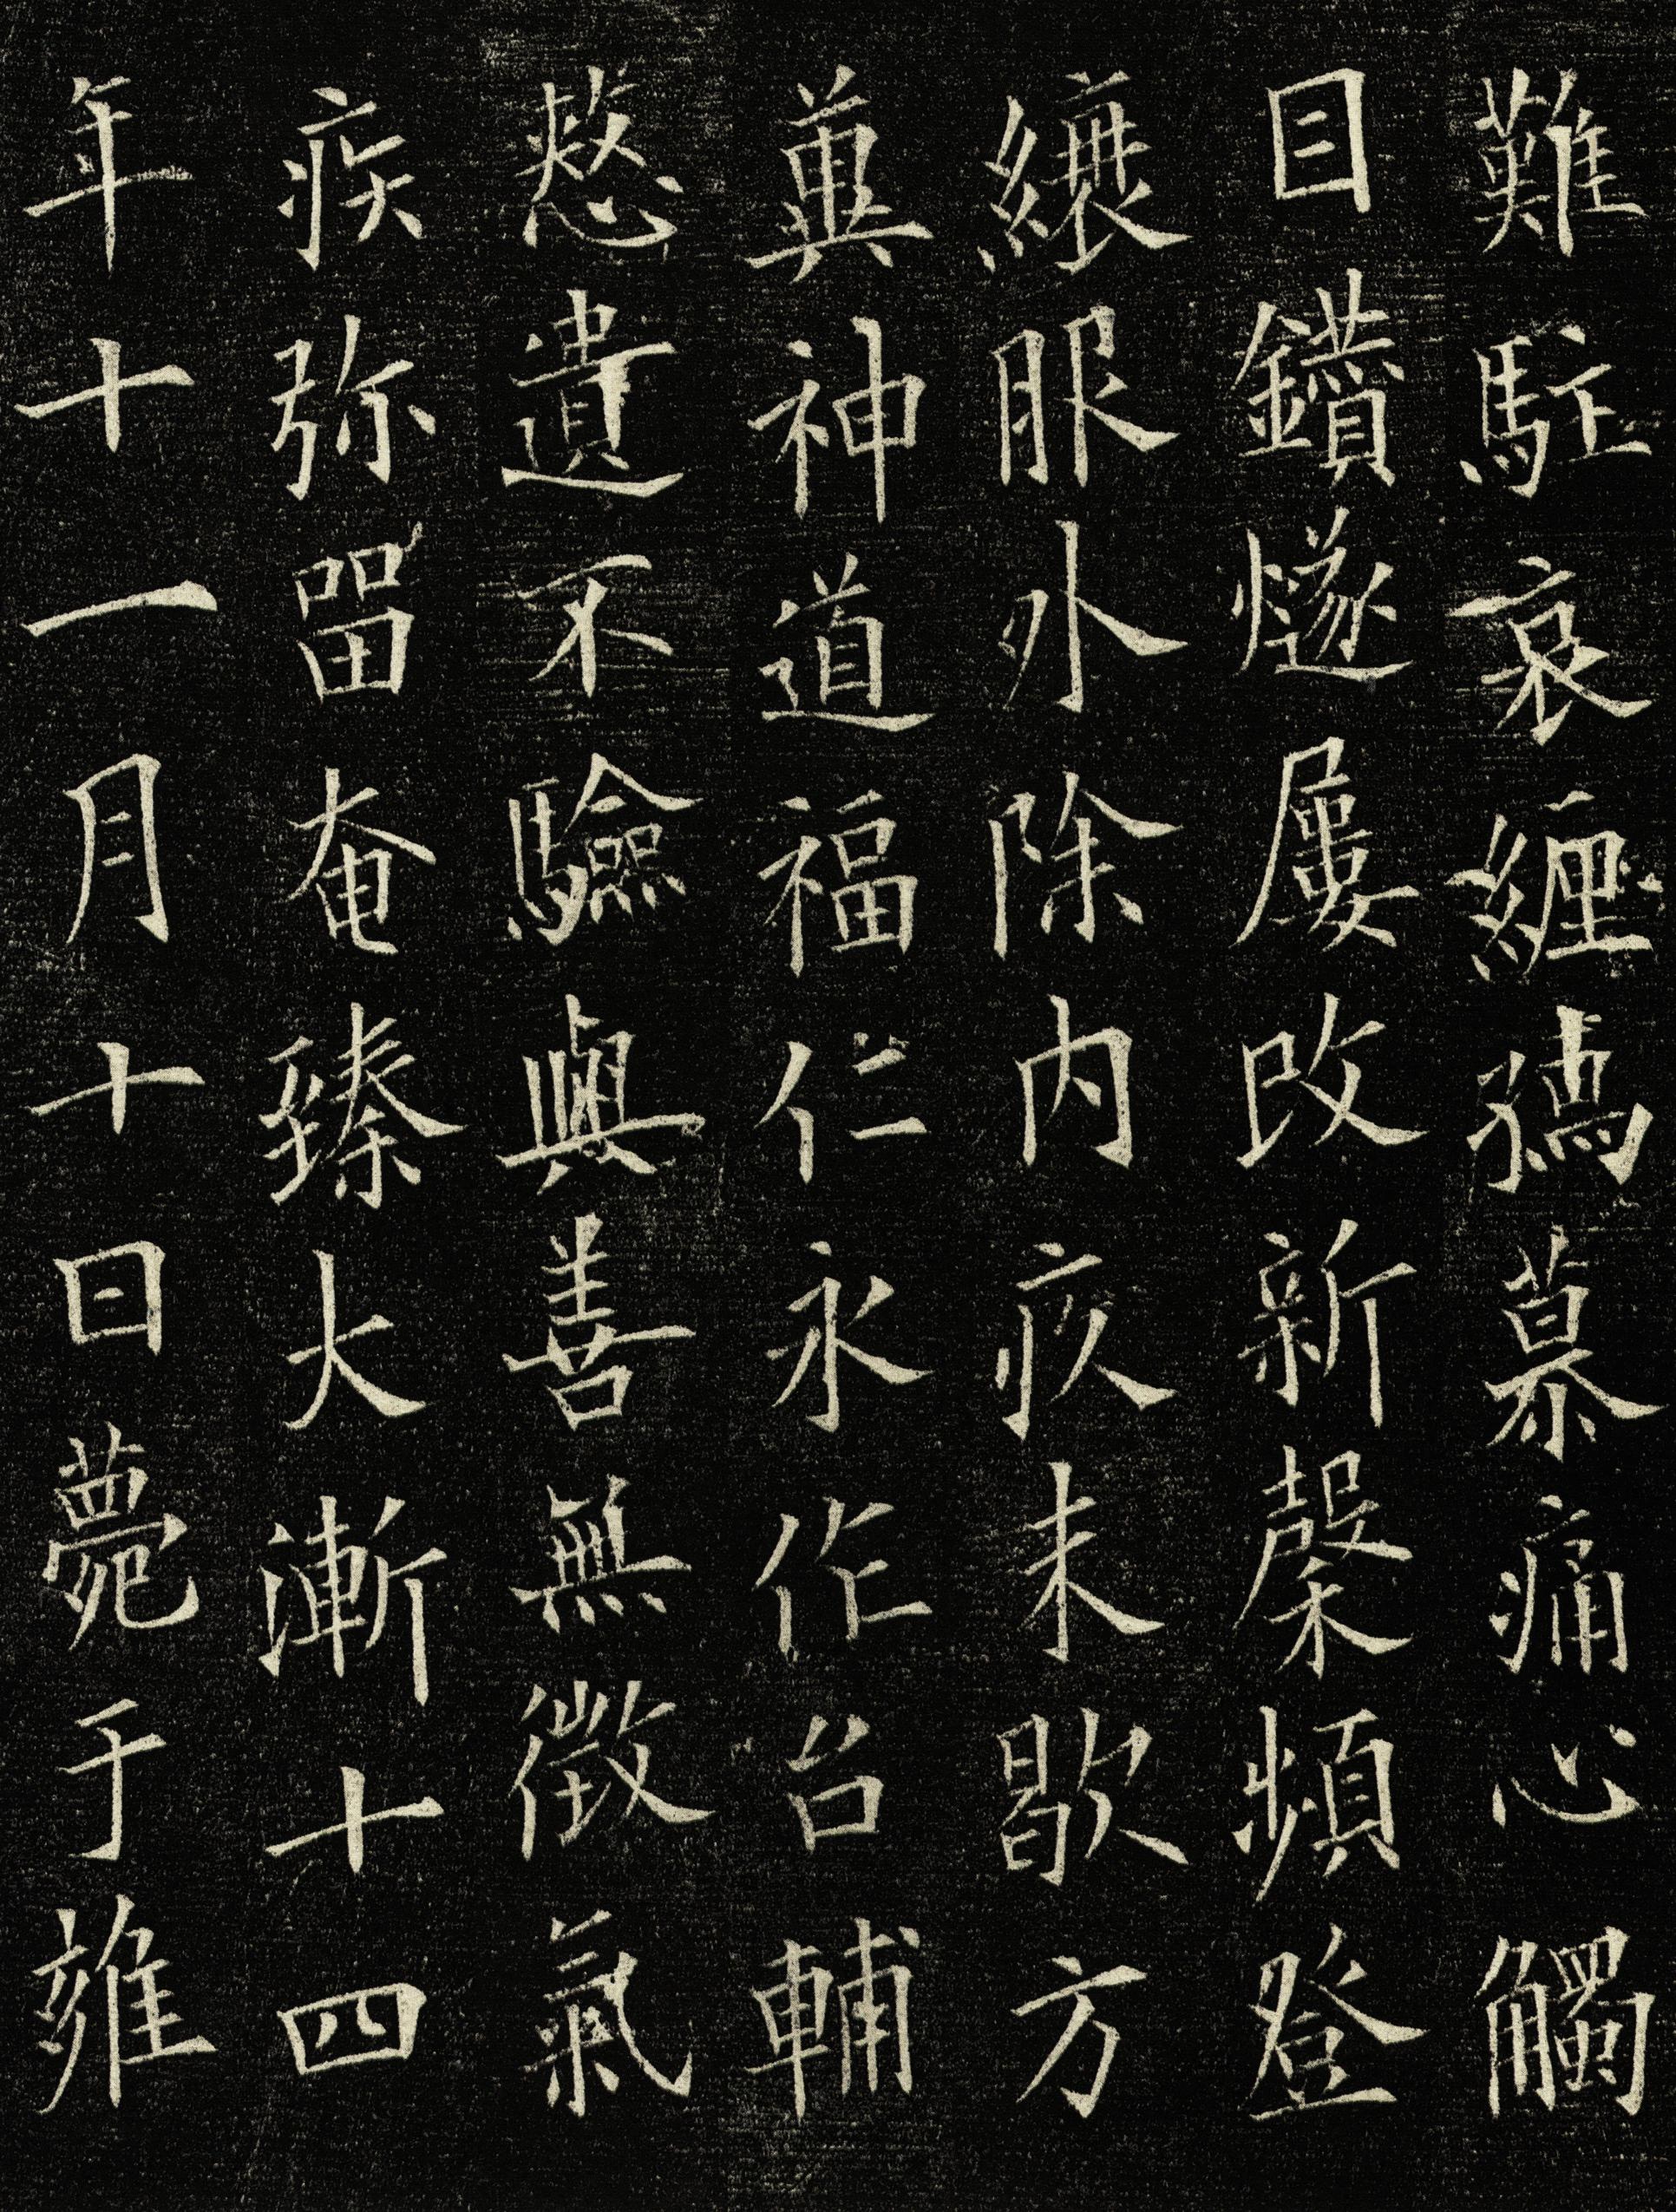 難駐哀纏孺慕痛心觸
目鑽燧屢改新穀頻登
縗服外除内疚未歇方
冀神道福仁永作台輔
慭遺不驗與善無徵氣
疾弥留奄臻大漸十四
年十一月十日薨于雍